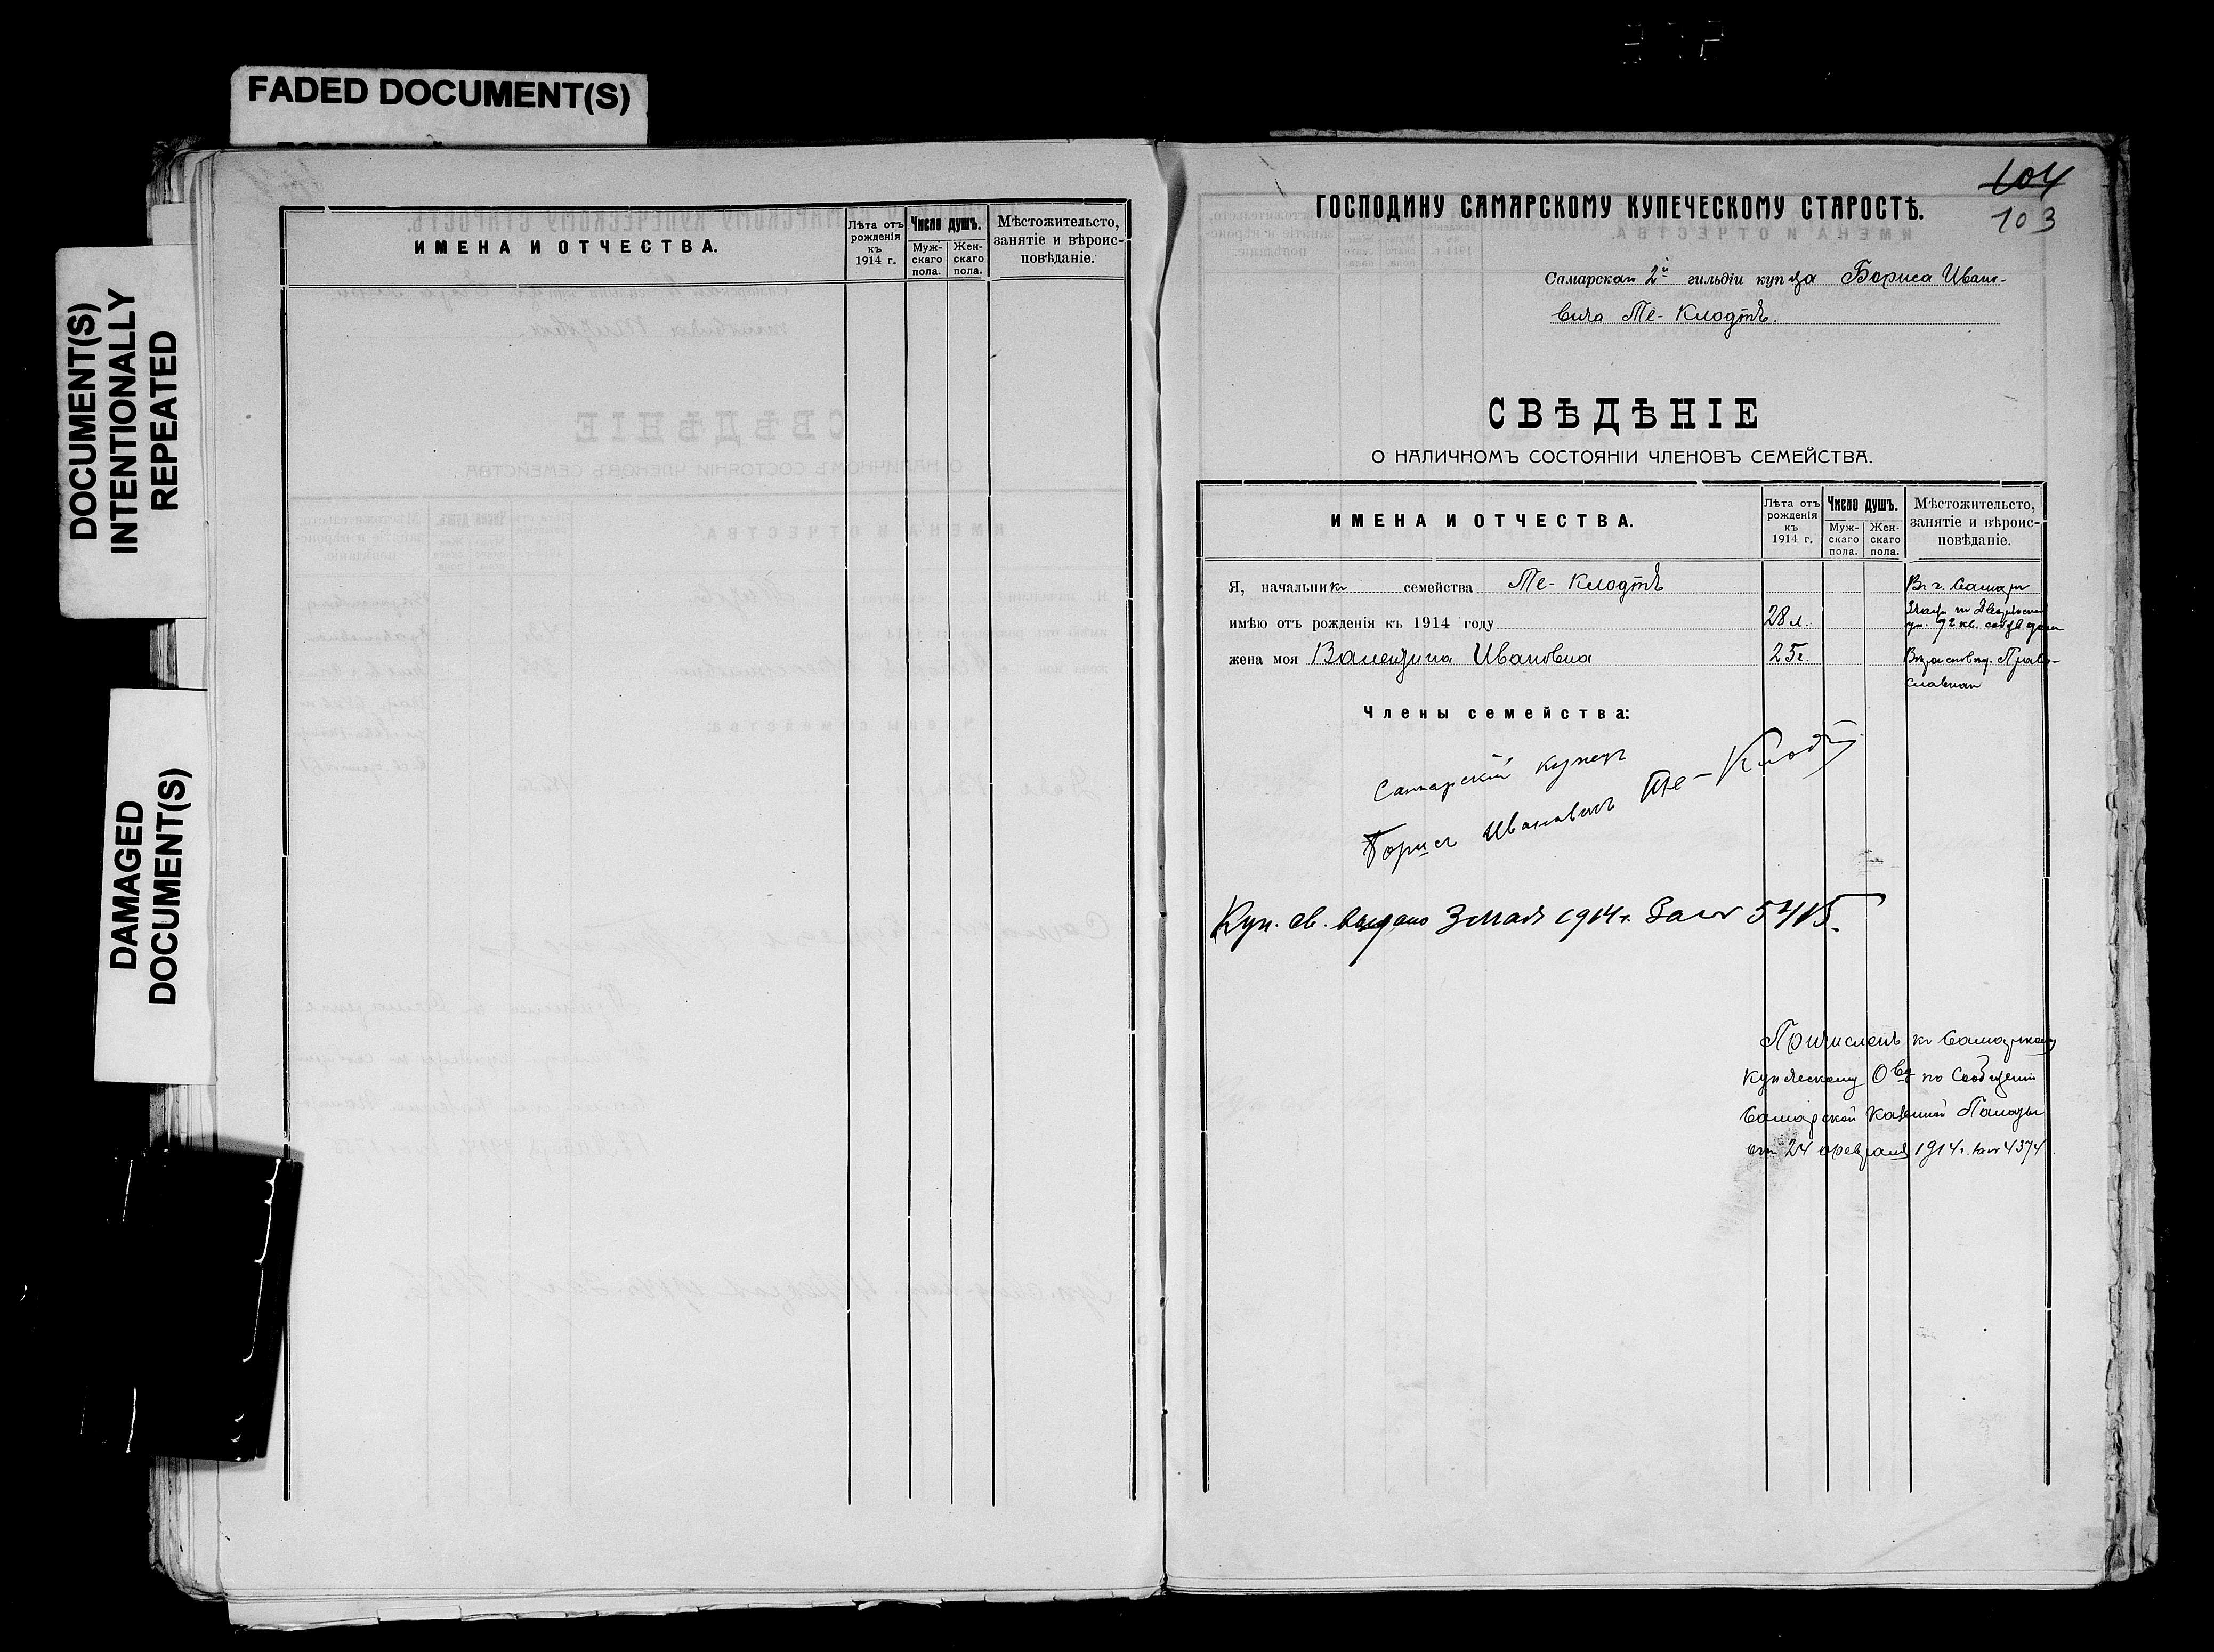 FADED DOCUMENT(S)
DOCUMENT(S)
INTENTIONALLY
REPEATED
DAMAGED
DOCUMENT(S)
ИМЕНА И ОТЧЕСТВА.
Лѣта отъ
рожденія
къ
1914 г.
Число душъ.
Муж-
скаго
пола.
Жен-
скаго
пола.
Мѣстожительсто,
занятіе и вѣроис-
повѣданіе.
104
103
ГОСПОДИНУ САМАРСКОМУ КУПЕЧЕСКОМУ СТАРОСТѢ.
Самарскаго 2й гильдіи купца Бориса Ивано-
вича Те-Клодтъ.
СВѢДѢНІЕ
О НАЛИЧНОМЪ СОСТОЯНІИ ЧЛЕНОВЪ СЕМЕЙСТВА.
ИМЕНА И ОТЧЕСТВА.
Лѣта отъ
рожденія
къ
1914 г.
Число душъ.
Муж-
скаго
пола.
Жен-
скаго
пола.
Мѣстожительсто,
занятіе и вѣроис-
повѣданіе.
Я, начальникъ семейства Те-Клодтъ
Въ г. Самарѣ
имѣю отъ рожденія къ 1914 году 28 л.
ул. 92 кв.
жена моя Валентина Ивановна 25 г.
Вѣроисповѣд. Право-
славнаго
Члены семейства:
Самарскій купецъ
Борисъ Ивановичъ Те-Клодтъ
Куп. св. выдано 3 мая 1914 г. за № 5415.
Причисленъ къ Самарскому
купеческому Обву по сообщенію
Самарской Казенной Палаты
отъ 24 февраля 1914 г. за № 4374